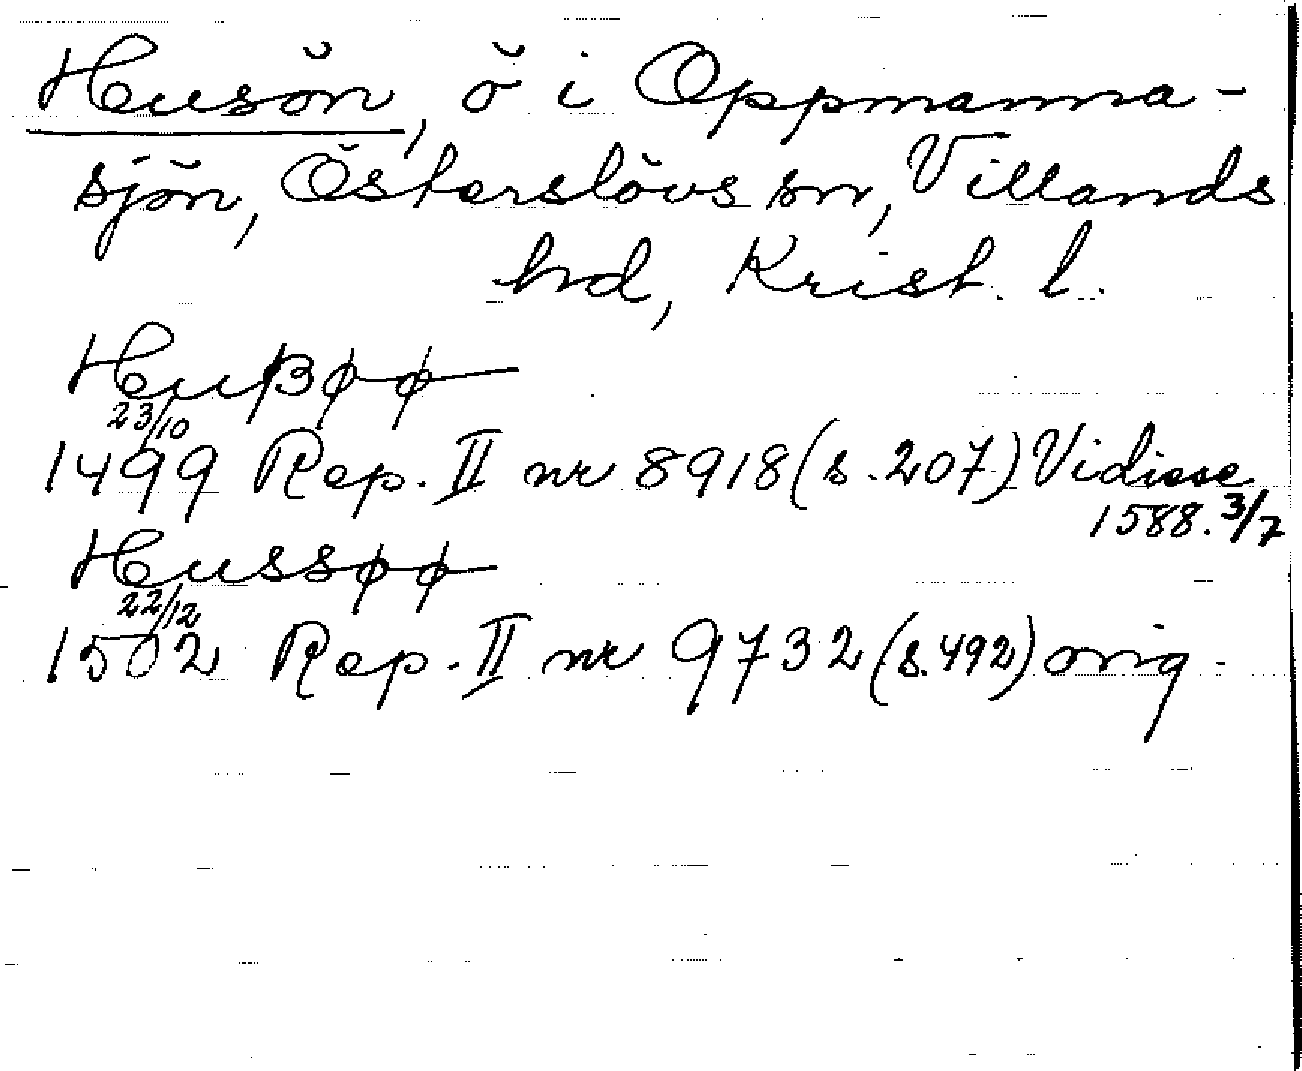 Husön, ö i Oppmanna-
sjön, Österslövs sn, Villands
hd, Krist. l.
Hußøø
23/10
1499 Rep. II nr 8918 (s. 207) Vidisse
1588. 3/7
Hussøø
22/12
1502 Rep. II nr 9732 (s. 492) orig.